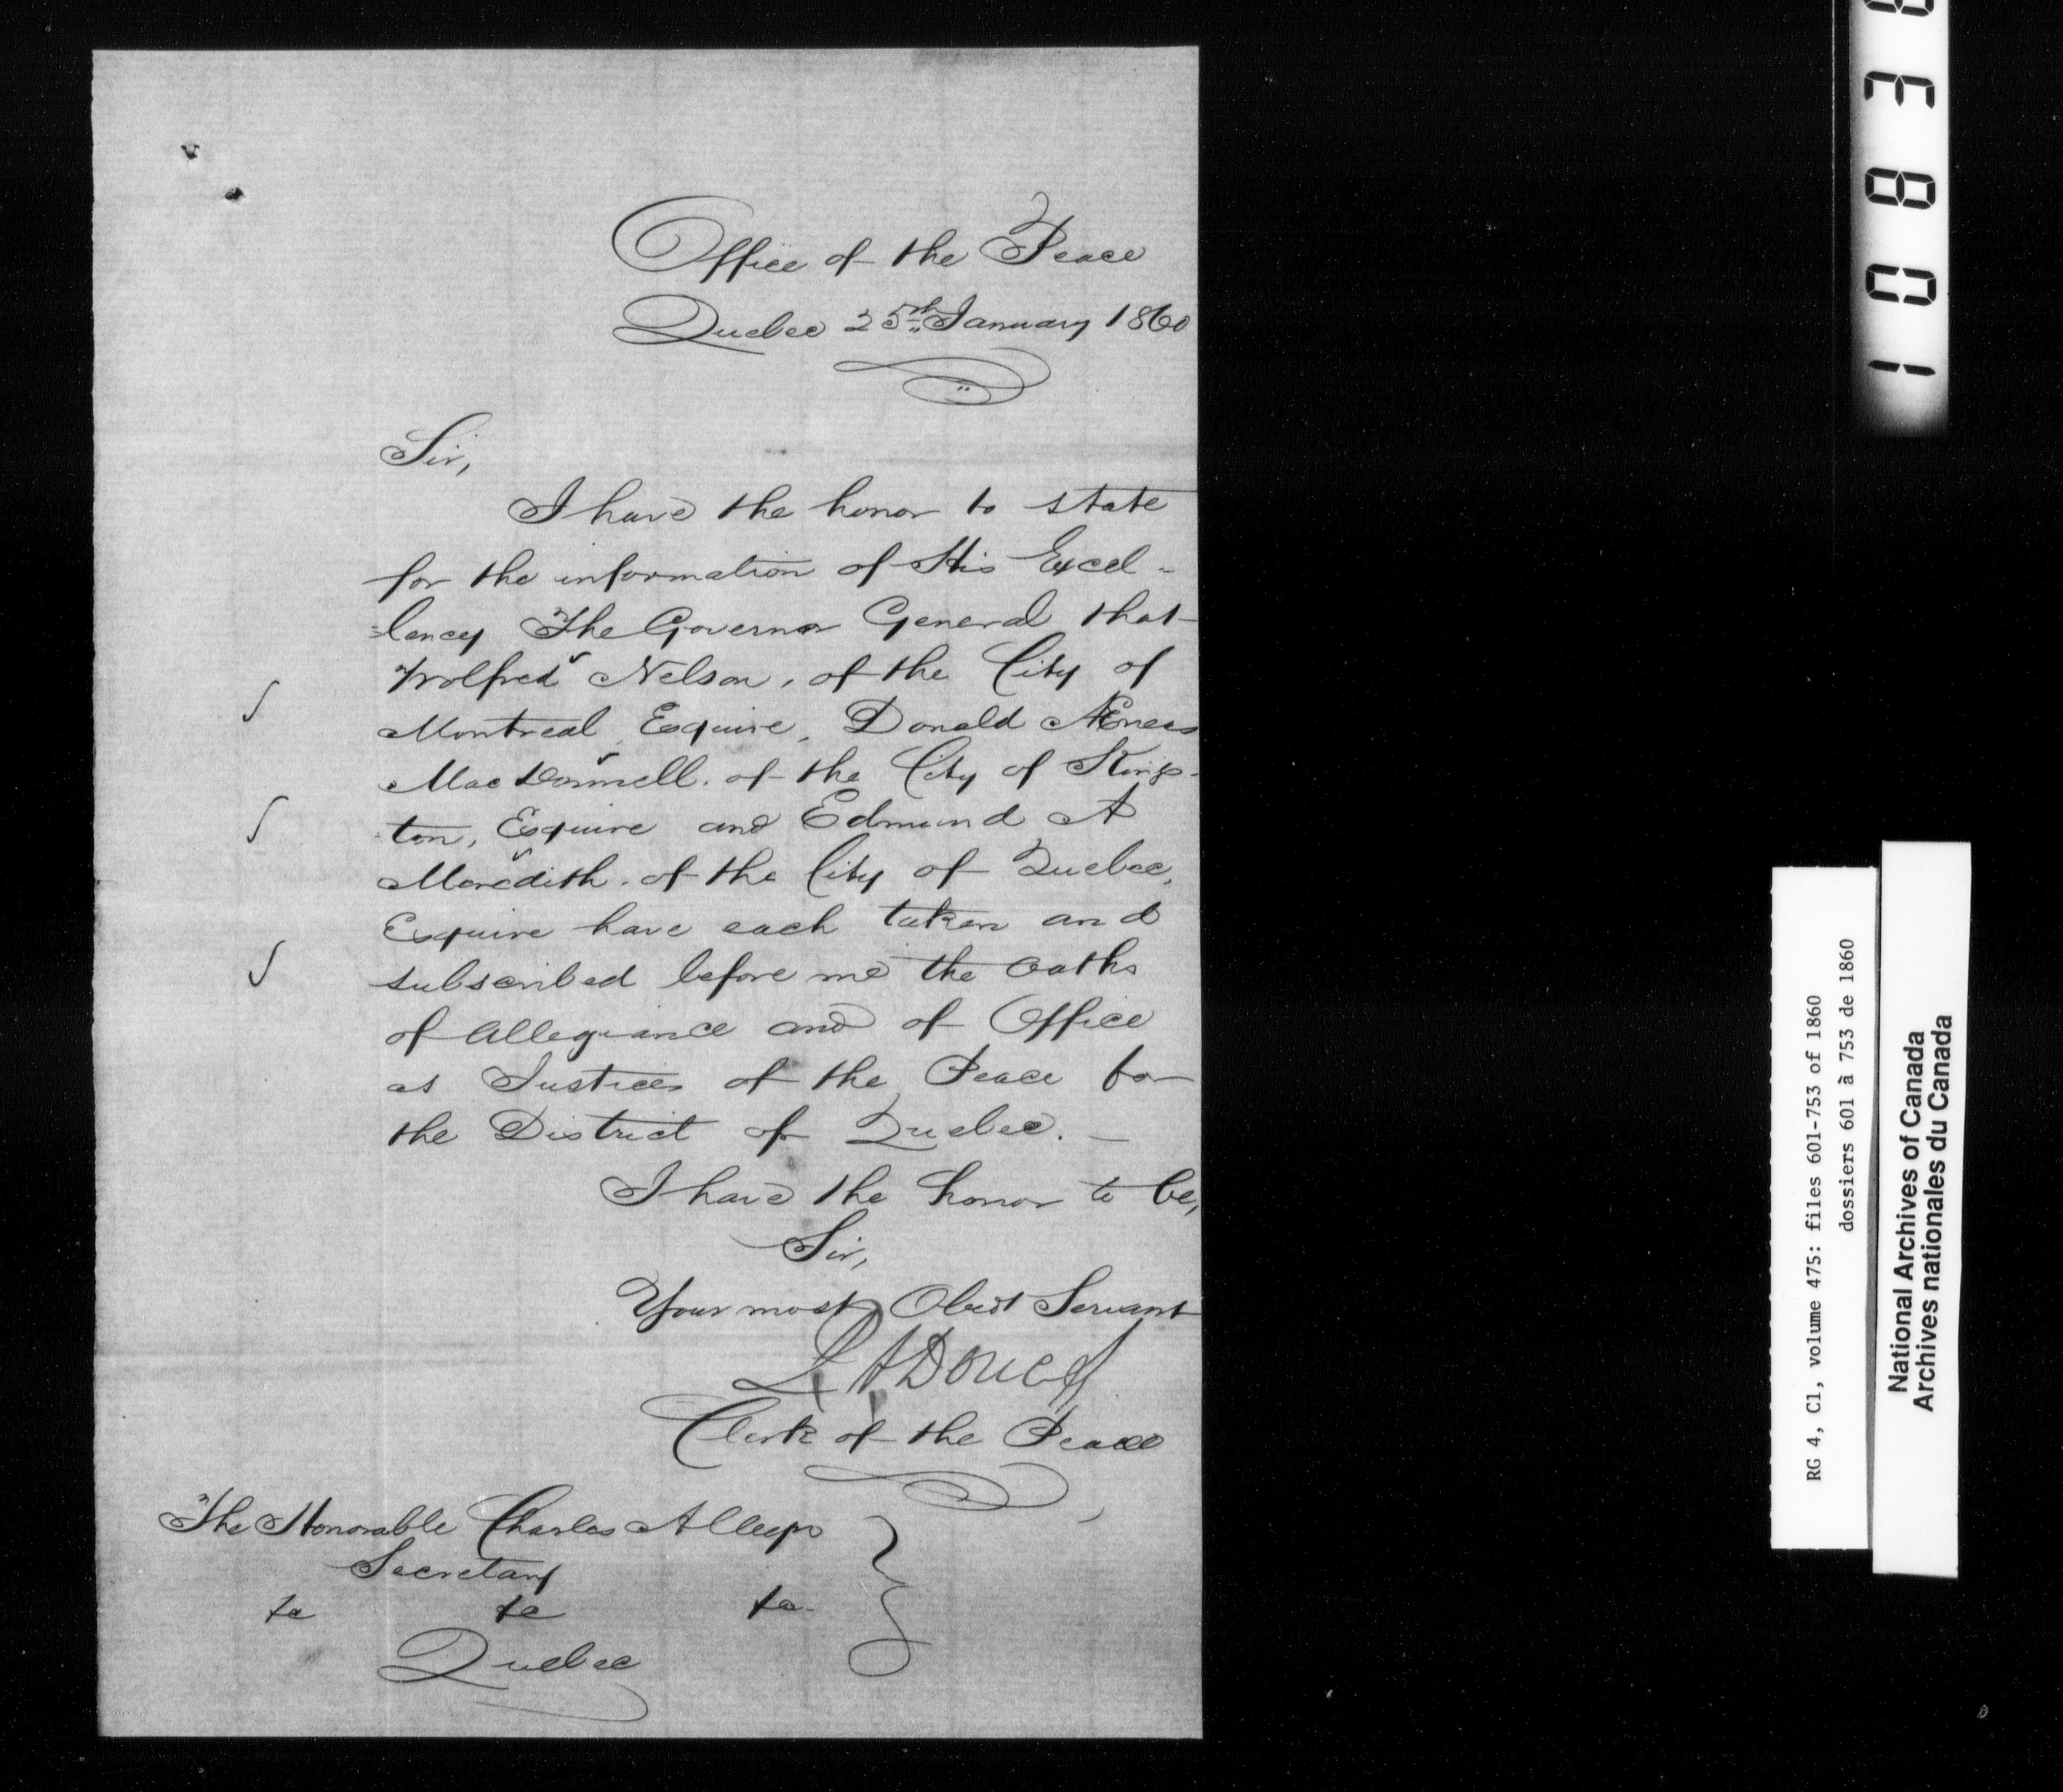 Office of the Peace
Quebec 25th January 1860
Sir,
I have the honor to state
for the information of His Excel-
=lency The Governor General that
Wolfred Nelson, of the City of
Montreal Esquire, Donald Æneas
MacDonnell, of the City of Kings-
ton, Esquire and Edmund A
Meredith, of the City of Quebec,
Esquire have each taken and
subscribed before me the Oaths
of Allegiance and of Office
as Justices of the Peace for
the District of Quebec. —
I have the honor to be,
Sir,
Your most Obedt Servant
Clerk of the Peace
The Honorable Charles Alleyn
Secretary
&c &c &c
Quebec
1 0 8 3
RG 4, C1, volume 475: files 601-753 of 1860
dossiers 601 à 753 de 1860
National Archives of Canada
Archives nationales du Canada